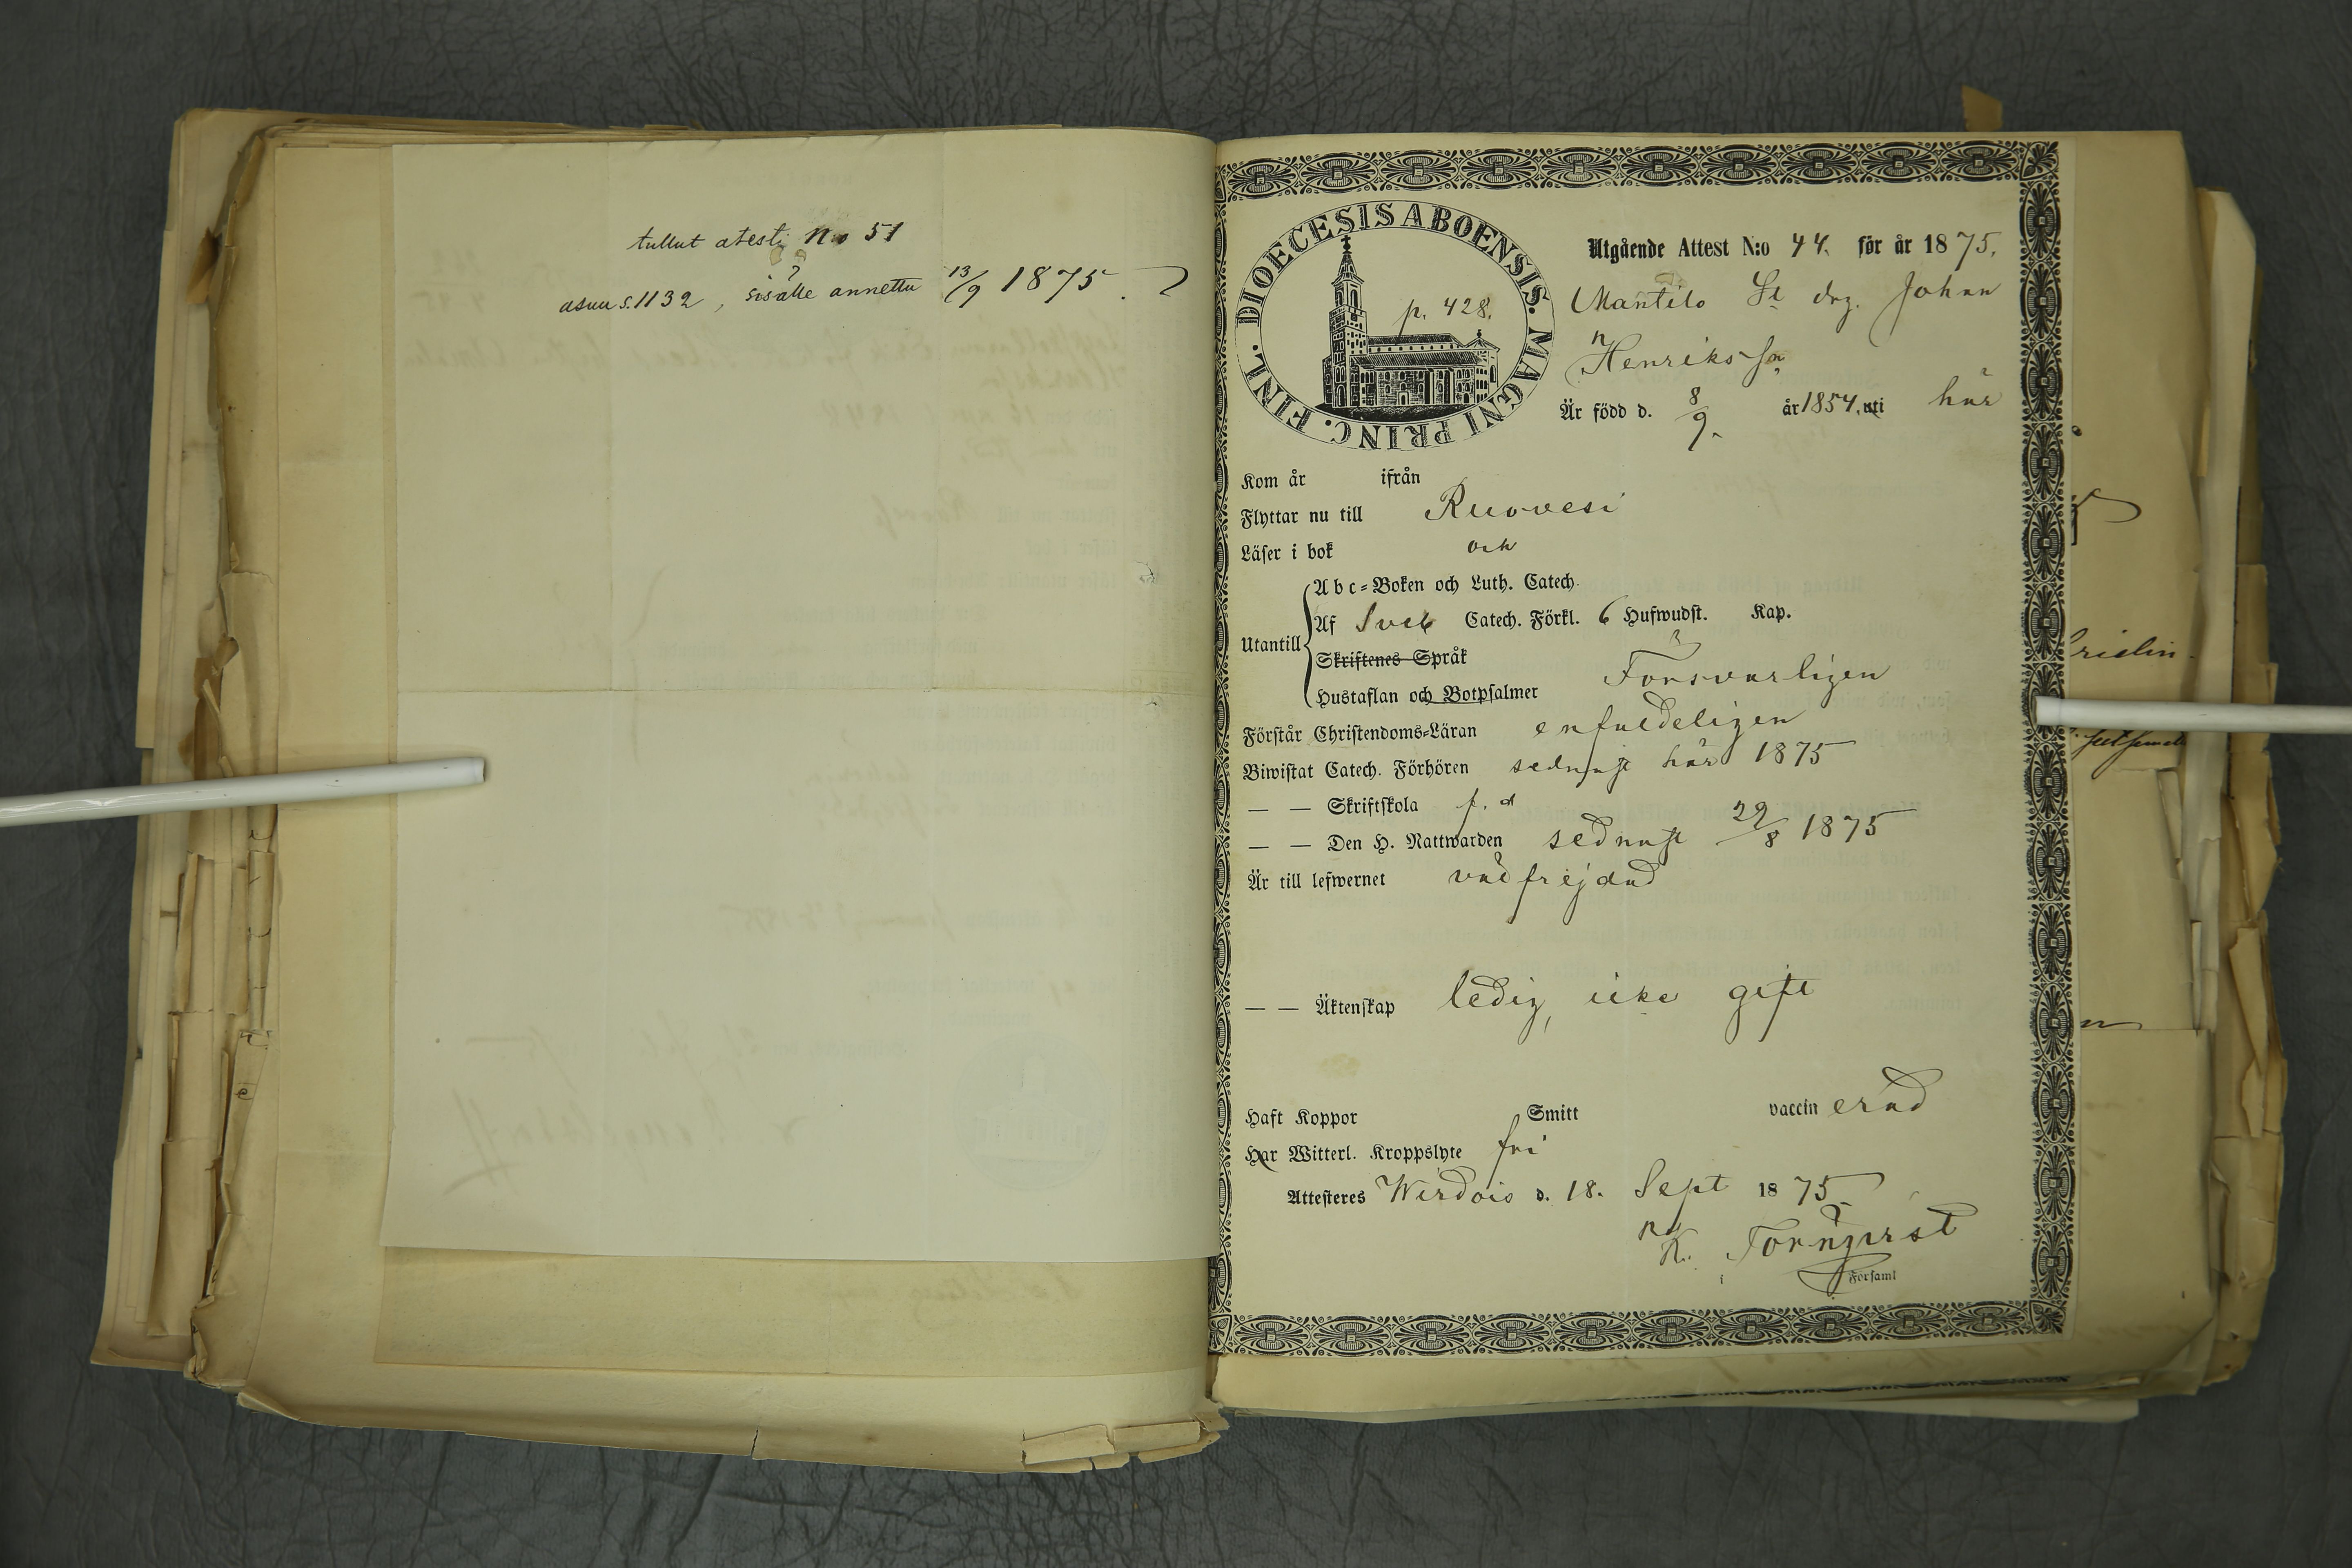 tullut atesti No 51
asuu s. 1132, sisälle annettu 13/9 1875.
DIOECESIS ABOENSIS. MAGNI PRINC. FINL.
p. 428.
Utgående Attest N:o 44. för år 1875.
Mantilo drg. Johan
Henriksson
Är född d. 8/9. år 1854, uti här
Kom år ifrån
Flyttar nu till Ruovesi
Läser i bok och
Utantill
Abc-Boken och Luth. Catech.
Af Sveb Catech. Förkl. 6 Hufwudst. Kap.
Skriftenes Språk
Hustaflan och Botpsalmer Försvarligen
Förstår Christendoms-Läran enfaldeligen
Biwistat Catech. Förhören sednast här 1875
— — Skriftskola f. d
— — Den H. Nattwarden sednast 29/8 1875
Är till lefwernet välfrejdad
— — Äktenskap ledig, icke gift
Haft Koppor Smitt vaccinerad
Har Witterl. Kroppslyte fri
Attesteres Wirdois d. 18. Sept 1875.
K. Törnqvist
Församl